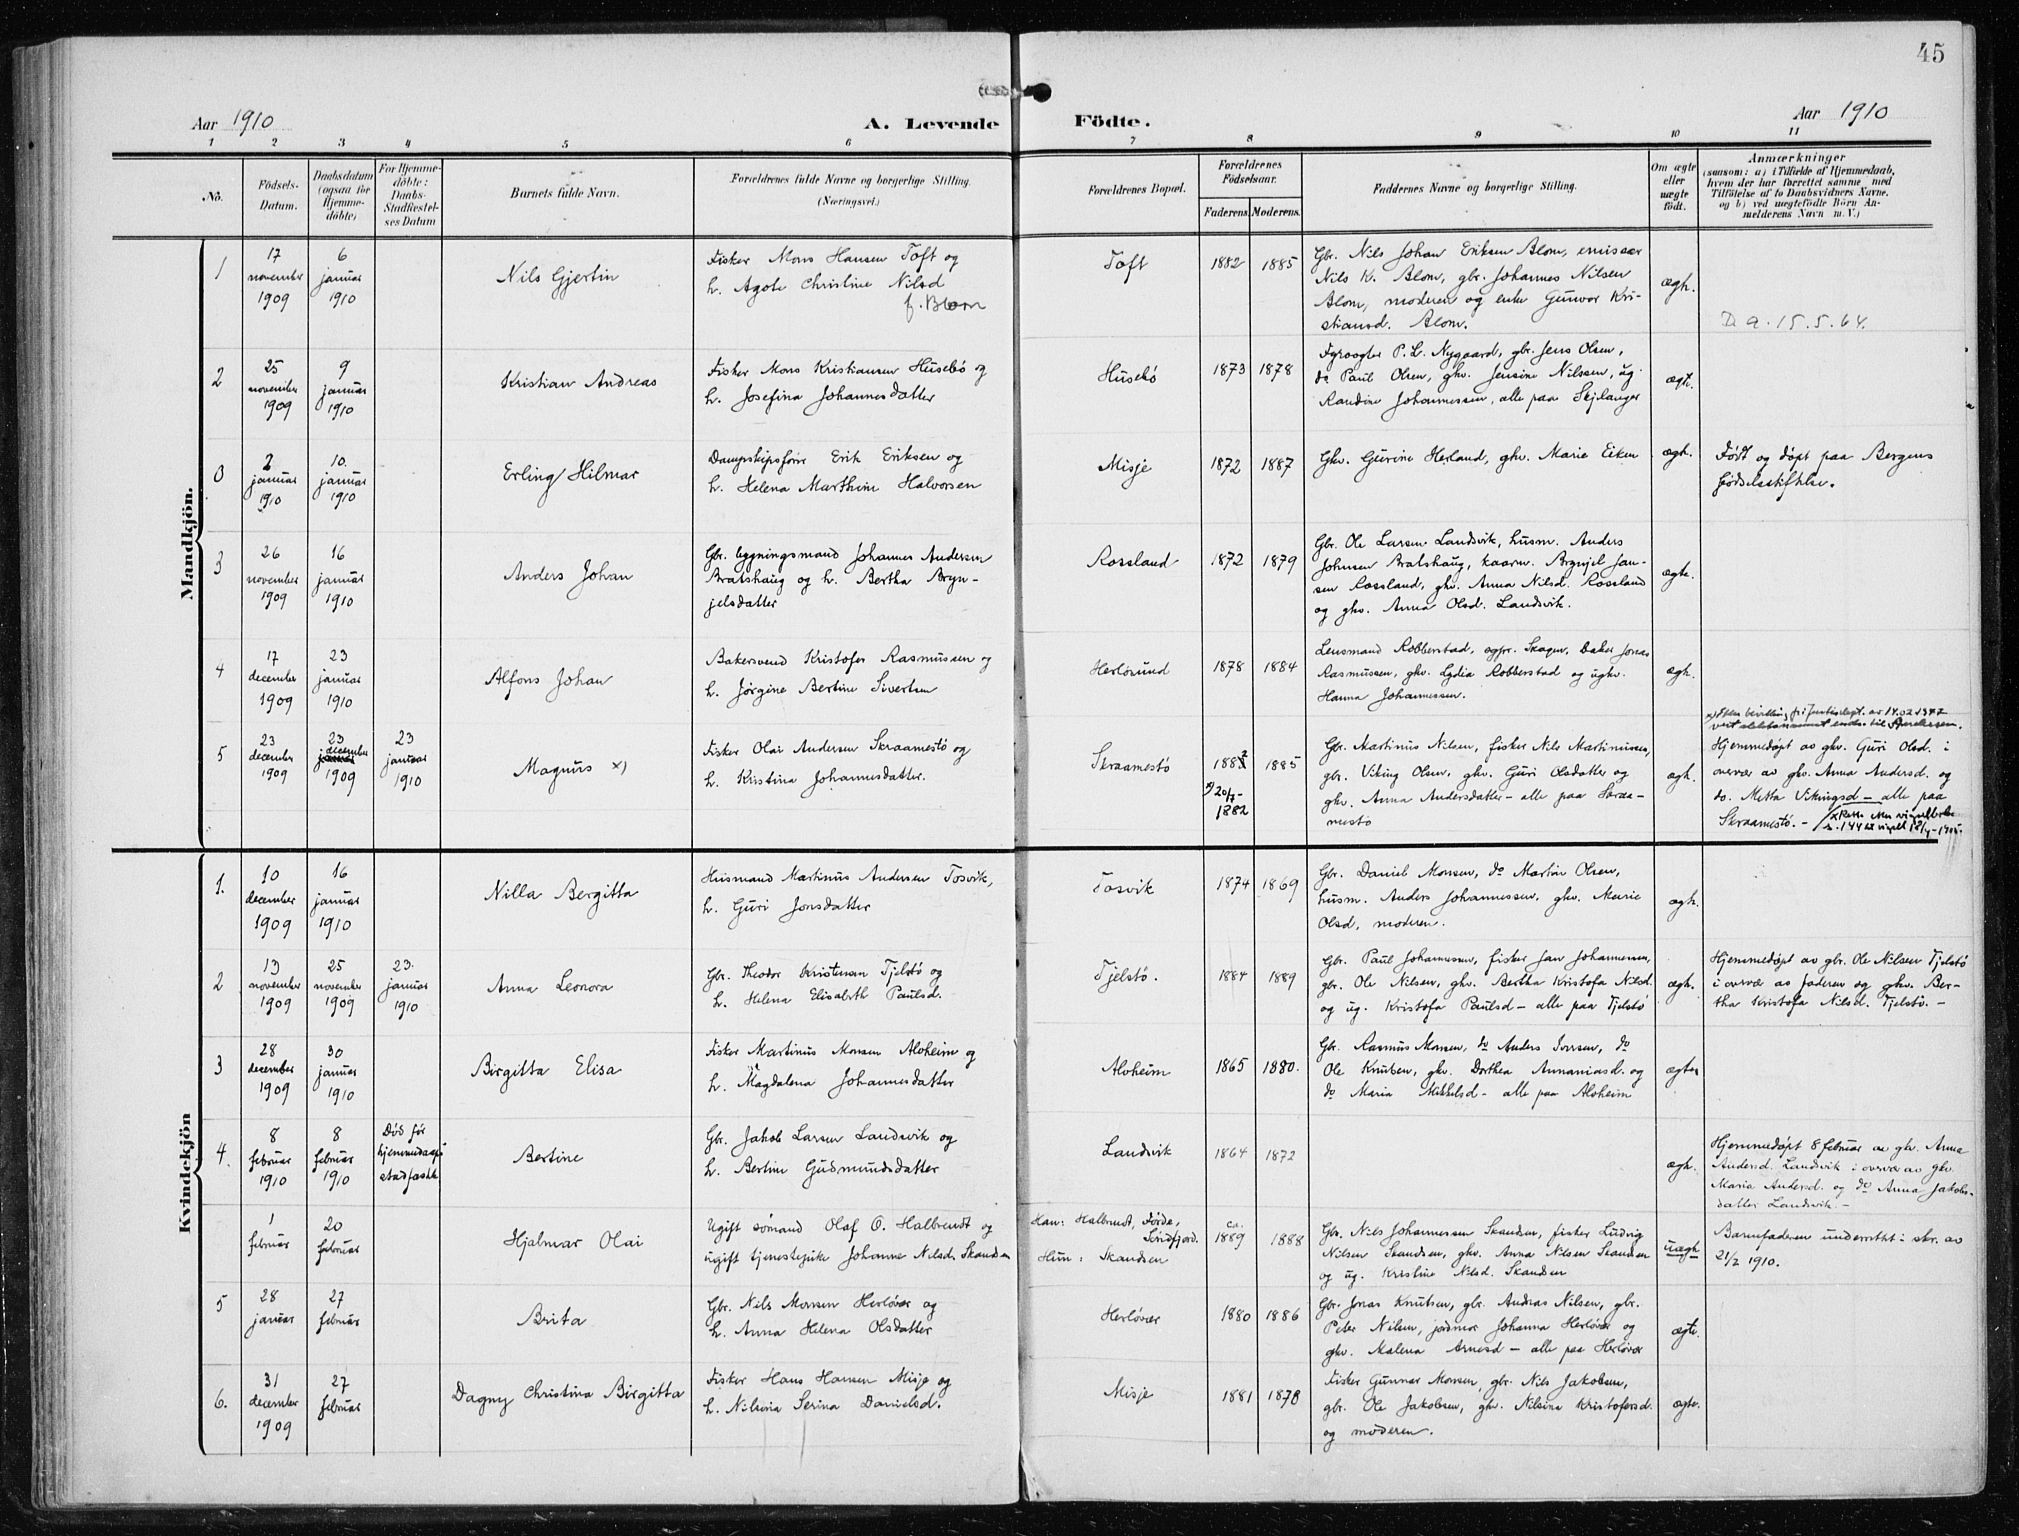 45
Aar 1910
A. Levende
Födte.
Aar 1910
1 2 3 4 5 6 7 8 9 10 11
No.
Födsels-
Datum.
Daabsdatum
(ogsaa for
Hjemme-
döbte)
For Hjemme-
döbte:
Daabs-
Stadfæstel-
ses Datum
Barnets fulde Navn.
Forældrenes fulde Navne og borgerlige Stilling.
(Næringsvei.)
Forældrenes Bopæl.
Forældrenes
Födselsaar.
Faderens. Moderens.
Faddernes Navne og borgerlige Stilling.
Om ægte
eller
uægte
födt.
Anmærkninger
(saasom: a) i Tilfælde af Hjemmedaab,
hvem der har forrettet samme med
Tilföielse af to Daabsvidners Navne.
og b) ved uægtefödte Börn An-
melderens Navn m. V.)
Mandkjön.
1
17
november
1909
6
januar
1910
Nils Gjertin
Fisker Mons Hansen Toft og
h. Agote Christine Nilsd
f. Blom
Toft
1882
1885
Gbr. Nils Johan Eriksen Blom, emissær
Nils K. Blom, gbr. Johannes Nilsen
Blom, moderen og enke Gunvor Kri-
stiansd. Blom.
ægt.
D 9.15.5.64.
2
25
november
1909
9
januar
1910
Kristian Andreas
Fisker Mons Kristiansen Husebö og
h. Josefina Johannesdatter
Husebö
1873
1878
Fyrvogter P. L. Nygaard, gbr. Jens Olsen,
do Paul Olsen, ghv. Jensine Nilssen, ug.
Randine Johannessen, alle paa Skjelanger
ægt.
0
2
januar
1910
10.
januar
1910
Erling Hilmar
Dampskipsförer Erik Eriksen og
h. Helena Marthine Halvorsen
Misje
1872
1887
Ghv. Gurine Herland, ghv. Marie Eiken
ægt.
Födt og döpt paa Bergens
födselsstiftelse.
3
26
november
1909
16
januar
1910
Anders Johan
Gbr. bygningsmand Johannes Andersen
Bratshaug og h. Bertha Bryn-
jelsdatter
Rossland
1872
1879
Gbr. Ole Larsen Landsvik, husm. Anders
Johnsen Bratshaug, kaarm. Brynjel Jan-
sen Rossland, ghv. Anna Nilsd. Rossland
og ghv. Anna Olsd. Landsvik.
ægte.
4
17
december
1909
23
januar
1910
Alfons Johan
Bakersvend Kristofer Rasmussen og
h. Jörgine Bertine Sivertsen
Herlösund
1878
1884
Lensmand Robberstad, Skagen, baker Jonas
Rasmussen, ghv. Lydia Robberstad og ughv.
Hanna Johannessen.
ægt.
5
23
december
1909
23
december
1909
23
januar
1910
Magnus x)
Fisker Olai Andersen Skraamestö og
h. Kristina Johannesdatter.
Skraamestö
1882
x) 20/7-
1882
1885
Gbr. Martinus Nilsen, fisker Nils Martinussen,
gbr. Viking Olsen, ghv. Guri Olsdatter og
ghv. Anna Andersdatter - alle paa Skraa-
mestö
ægt.
Hjemmedöpt av ghv. Guri Olsd. i
overvær av ghv. Anna Andersd. og
do. Metta Vikingsd - alle paa
Skraamestö. -
Kvindekjön
1.
10
december
1909
16
januar
1910
Nilla Bergitta
Husmand Martinus Andersen Tosvik,
h. Guri Jonsdatter
Tosvik
1874
1869
Gbr. Daniel Monsen, do Martin Olsen,
husm. Anders Johannessen, ghv. Marie
Olsd, moderen.
ægt.
2
13
november
1909
25
november
1909
23.
januar
1910
Anna Leonora
Gbr. Theodor Kristensen Tjelstö og
h. Helena Elisabeth Paulsd.
Tjelstö.
1884
1889
Gbr. Paul Johannessen, fisker Jan Johannessen,
gbr. Ole Nilsen, ghv. Bertha Kristofa Nilsd.
og ug. Kristofa Paulsd - alle paa Tjelstö
ægt.
Hjemmedöpt av gbr. Ole Nilsen Tjelstö
i overvær av faderen og ghv. Ber-
tha Kristofa Nilsd. Tjelstö. -
3
28
december
1909
30
januar
1910
Birgitta Elisa
Fisker Martinus Monsen Alvheim og
h. Magdalena Johannesdatter
Alvheim
1865
1880.
Gbr. Rasmus Monsen, do Anders Iversen, do
Ole Knutsen, ghv. Dorthea Annaniasd. og
do Maria Mikkelsd - alle paa Alvheim
ægte
4.
8
februar
1910
8
februar
1910
Död før
hjemmedaaps
stadfæstelse
Bertine
Gbr. Jakob Larsen Landsvik og
h. Bertine Gudmundsdatter
Landsvik
1864
1872
ægt.
Hjemmedöpt 8 februar av ghv. Anna
Andersd. Landsvik i overvær av ghv.
Maria Andersd. og do Anna Jakobs-
datter Landsvik -
1
februar
20
februar
Hjalmar Olai
Ugift sömand Olaf O. Halbrendt og
ugift tjenestepike Johanne Nilsd. Skandsen
Han: Halbrendt, Förde,
Söndfjord.
Hun: Skandsen
ca.
1889
1888
Gbr. Nils Johannessen Skandsen, fisker Ludvig
Nilsen Skandsen, ghv. Anna Nilsen Skandsen
og ug. Kristine Nilsd. Skandsen
uægt
Barnefaderen underrettet i skr. av
21/2 1910.
5
28
januar
27
februar
Brita
Gbr. Nils Monsen Herlövær og
h. Anna Helena Olsdatter
Herlövær
1880
1886
Gbr. Jonas Knutsen, gbr. Andreas Nilsen, gbr.
Peter Nilsen, jordmor Johanna Herlövær og
ghv. Malena Arnesd - alle paa Herlövær
ægte.
6.
31
december
1909
27
februar
Dagny Christina Birgitta
Fisker Hans Hansen Misje og
h. Nilsina Serina Danielsd.
Misje
1881
1878
Fisker Gunnar Monsen, gbr. Nils Jakobsen,
gbr. Ole Jakobsen, ghv. Nilsina Kristofersd.
og moderen.
ægte.